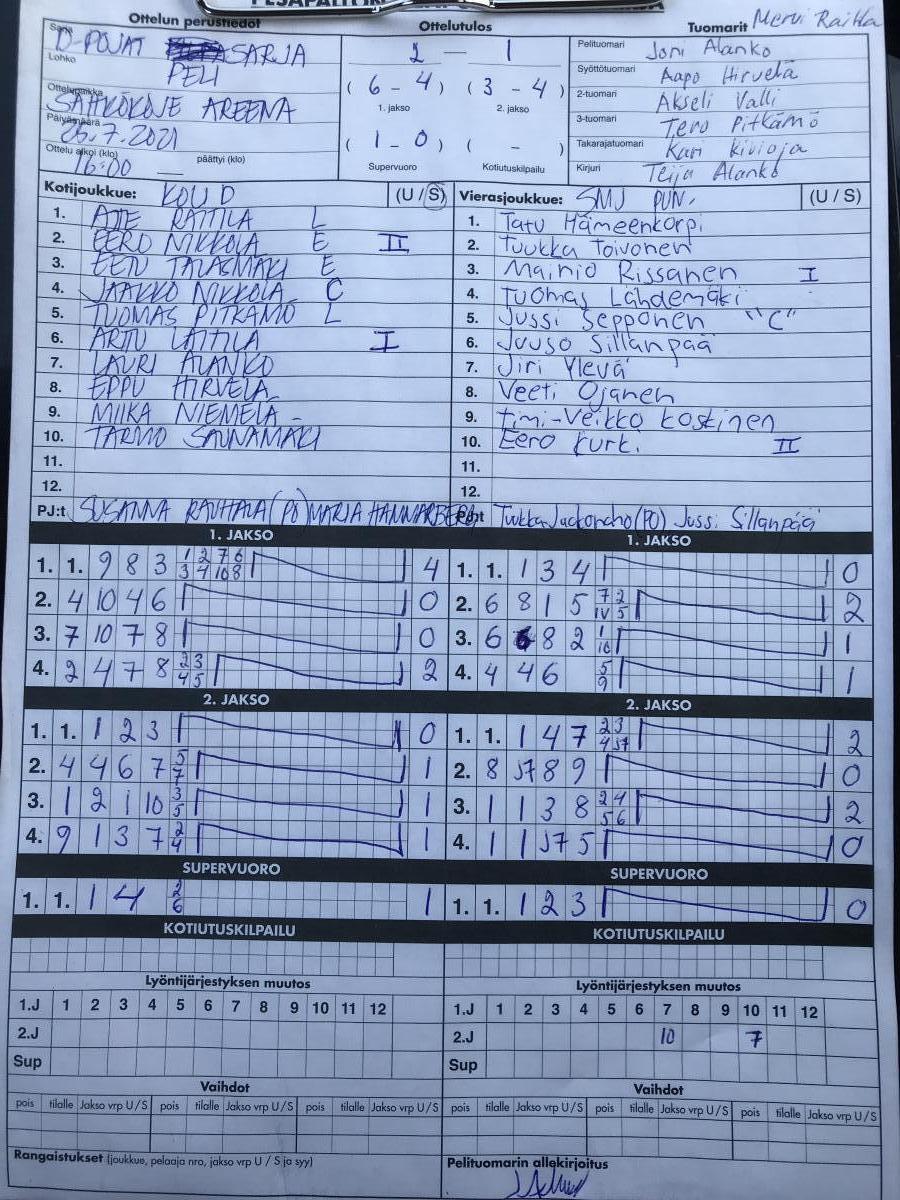 Ottelun perustiedot
Ottelutulos
Tuomarit Mervi Raitila
Sarja D-POJAT SARJA
Lohko PELI
Ottelupaikka SÄHKÖKOJE AREENA
Päivämäärä 25.7.2021
Ottelu alkoi (klo) 16:00 päättyi (klo)
2 — 1
( 6 - 4 ) ( 3 - 4 )
1. jakso 2. jakso
( 1 - 0 ) ( - )
Supervuoro Kotiutuskilpailu
Pelituomari Joni Alanko
Syöttötuomari Aapo Hirvelä
2-tuomari Akseli Valli
3-tuomari Tero Pitkämö
Takarajatuomari Kari Kivioja
Kirjuri Teija Alanko
Kotijoukkue: KOU D (U / S)
1. ATTE RAITILA L
2. EERO NIKKOLA E II
3. EETU TALASMÄKI E
4. JAAKKO NIKKOLA C
5. TUOMAS PITKÄMÖ L
6. ARTTU LAITILA I
7. LAURI ALANKO
8. EPPU HIRVELÄ
9. MIIKA NIEMELÄ
10. TARMO SAUNAMÄKI
11.
12.
PJ:t SUSANNA RAUHALA (PO) MARJA HAMMARBERG
Vierasjoukkue: SMJ PUN. (U / S)
1. Tatu Hämeenkorpi
2. Tuukka Toivonen
3. Mainio Rissanen I
4. Tuomas Lähdemäki
5. Jussi Sepponen "C"
6. Juuso Sillanpää
7. Jiri Ylevä
8. Veeti Ojanen
9. Timi-Veikko Koskinen
10. Eero Kurki II
11.
12.
Jussi Sillanpää
1. JAKSO
1. 1. 9 8 3 1 2 7 6 3 4 10 8 4
2. 4 10 4 6 0
3. 7 10 7 8 0
4. 2 4 7 8 2 3 4 5 2
1. JAKSO
1. 1. 1 3 4 0
2. 6 8 1 5 7 2 IV 5 2
3. 6 8 2 1 10 1
4. 4 4 6 5 9 1
2. JAKSO
1. 1. 1 2 3 0
2. 4 4 6 7 5 7 1
3. 1 2 1 10 3 5 1
4. 9 1 3 7 2 4 1
2. JAKSO
1. 1. 1 4 7 2 3 4 J7 2
2. 8 J7 8 9 0
3. 1 1 3 8 2 4 5 6 2
4. 1 1 J7 5 0
SUPERVUORO
1. 1. 1 4 2 6 1
SUPERVUORO
1. 1. 1 2 3 0
KOTIUTUSKILPAILU
KOTIUTUSKILPAILU
Lyöntijärjestyksen muutos
1.J 1 2 3 4 5 6 7 8 9 10 11 12
2.J
Sup
Lyöntijärjestyksen muutos
1.J 1 2 3 4 5 6 7 8 9 10 11 12
2.J 10 7
Sup
Vaihdot
pois tilalle Jakso vrp U / S pois tilalle Jakso vrp U / S pois tilalle Jakso vrp U / S
Vaihdot
pois tilalle Jakso vrp U / S pois tilalle Jakso vrp U / S pois tilalle Jakso vrp U / S
Rangaistukset (joukkue, pelaaja nro, jakso vrp U / S ja syy)
Pelituomarin allekirjoitus